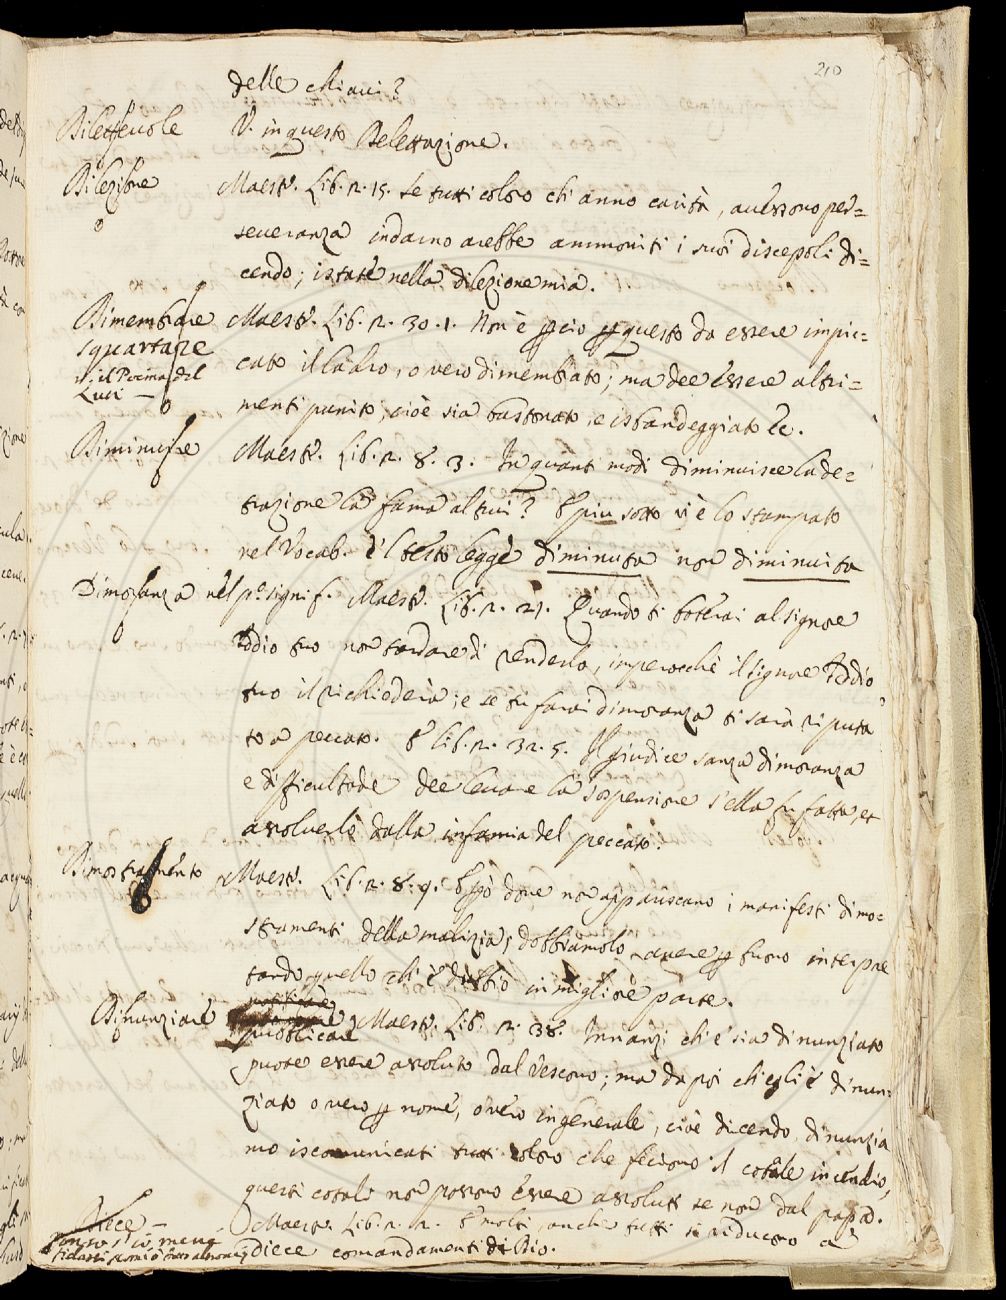 210
delle chiavi?
Dilettevole V. in questo Delettazione.
Dilezione Maestr. Lib. 2. 15. Se tutti coloro ch'anno carità, avessono per=
severanza indarno arebbe ammoniti i suoi discepoli di=
cendo; istate nella dilezione mia.
Dimembrare Maestr. Lib. 2. 30. 1. Non è p questo da essere impic=
squartare
cato il ladro, o vero dimembrato; ma dee essere altri=
v. il Poema del
Luci —
menti punito, cioè sia bastonato, e isbandeggiato &c.
Diminuire Maestr. Lib. 2. 8. 3. In quanti modi diminuisce la de=
trazione la fama altrui? E più sotto vi è lo stampato
nel Vocab. e 'l testo legge diminuta non diminuita
Dimoranza nel p.º signif. Maestr. Lib. 2. 21. Quando ti boterai al signore
Iddio tuo non tardare di renderlo, imperocchè il signore Iddio
tuo il richiederà; e se tu farai dimoranza ti sarà riputa
to a peccato. E Lib. 2. 32. 5. Il giudice sanza dimoranza
e difficultade dee levare la sospensione s'ella fu fatta, et
assolverlo dalla infamia del peccato.
Dimostramento Maestr. Lib. 2. 8. 9. E p.ò dove non appariscano i manifesti dimo=
stramenti della malizia, dobbiamolo avere p buono interpre
tando quello ch'è dubbio in migliore parte.
Dinunziare notificare
pubblicare Maestr. Lib. 2. 38. Innanzi ch'e' sia dinunziato
puote essere assoluto dal Vescovo; ma da poi ch'egli è dinun=
ziato o vero p nome, o vero in generale, cioè dicendo, dinunzia
mo iscomunicati tutti coloro che feciono il cotale incendio,
questi cotali non possono essere assoluti se non dal papa.
Diece — Maestr. Lib. 2. 2. E molti anche tutti si riducono a'
diece comandamenti di Dio.